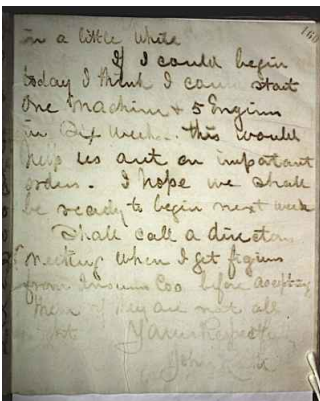 160
in a little while
If I could begin
today I think I could start
One Machine & 5 Engines
in Six weeks. this would
help us out on impatant
orders. I hope we shall
be ready to begin next week
Shall call a director
Meeting when I get figures
from Co before accepting
them if they are not all
right Yours Respectfully
John